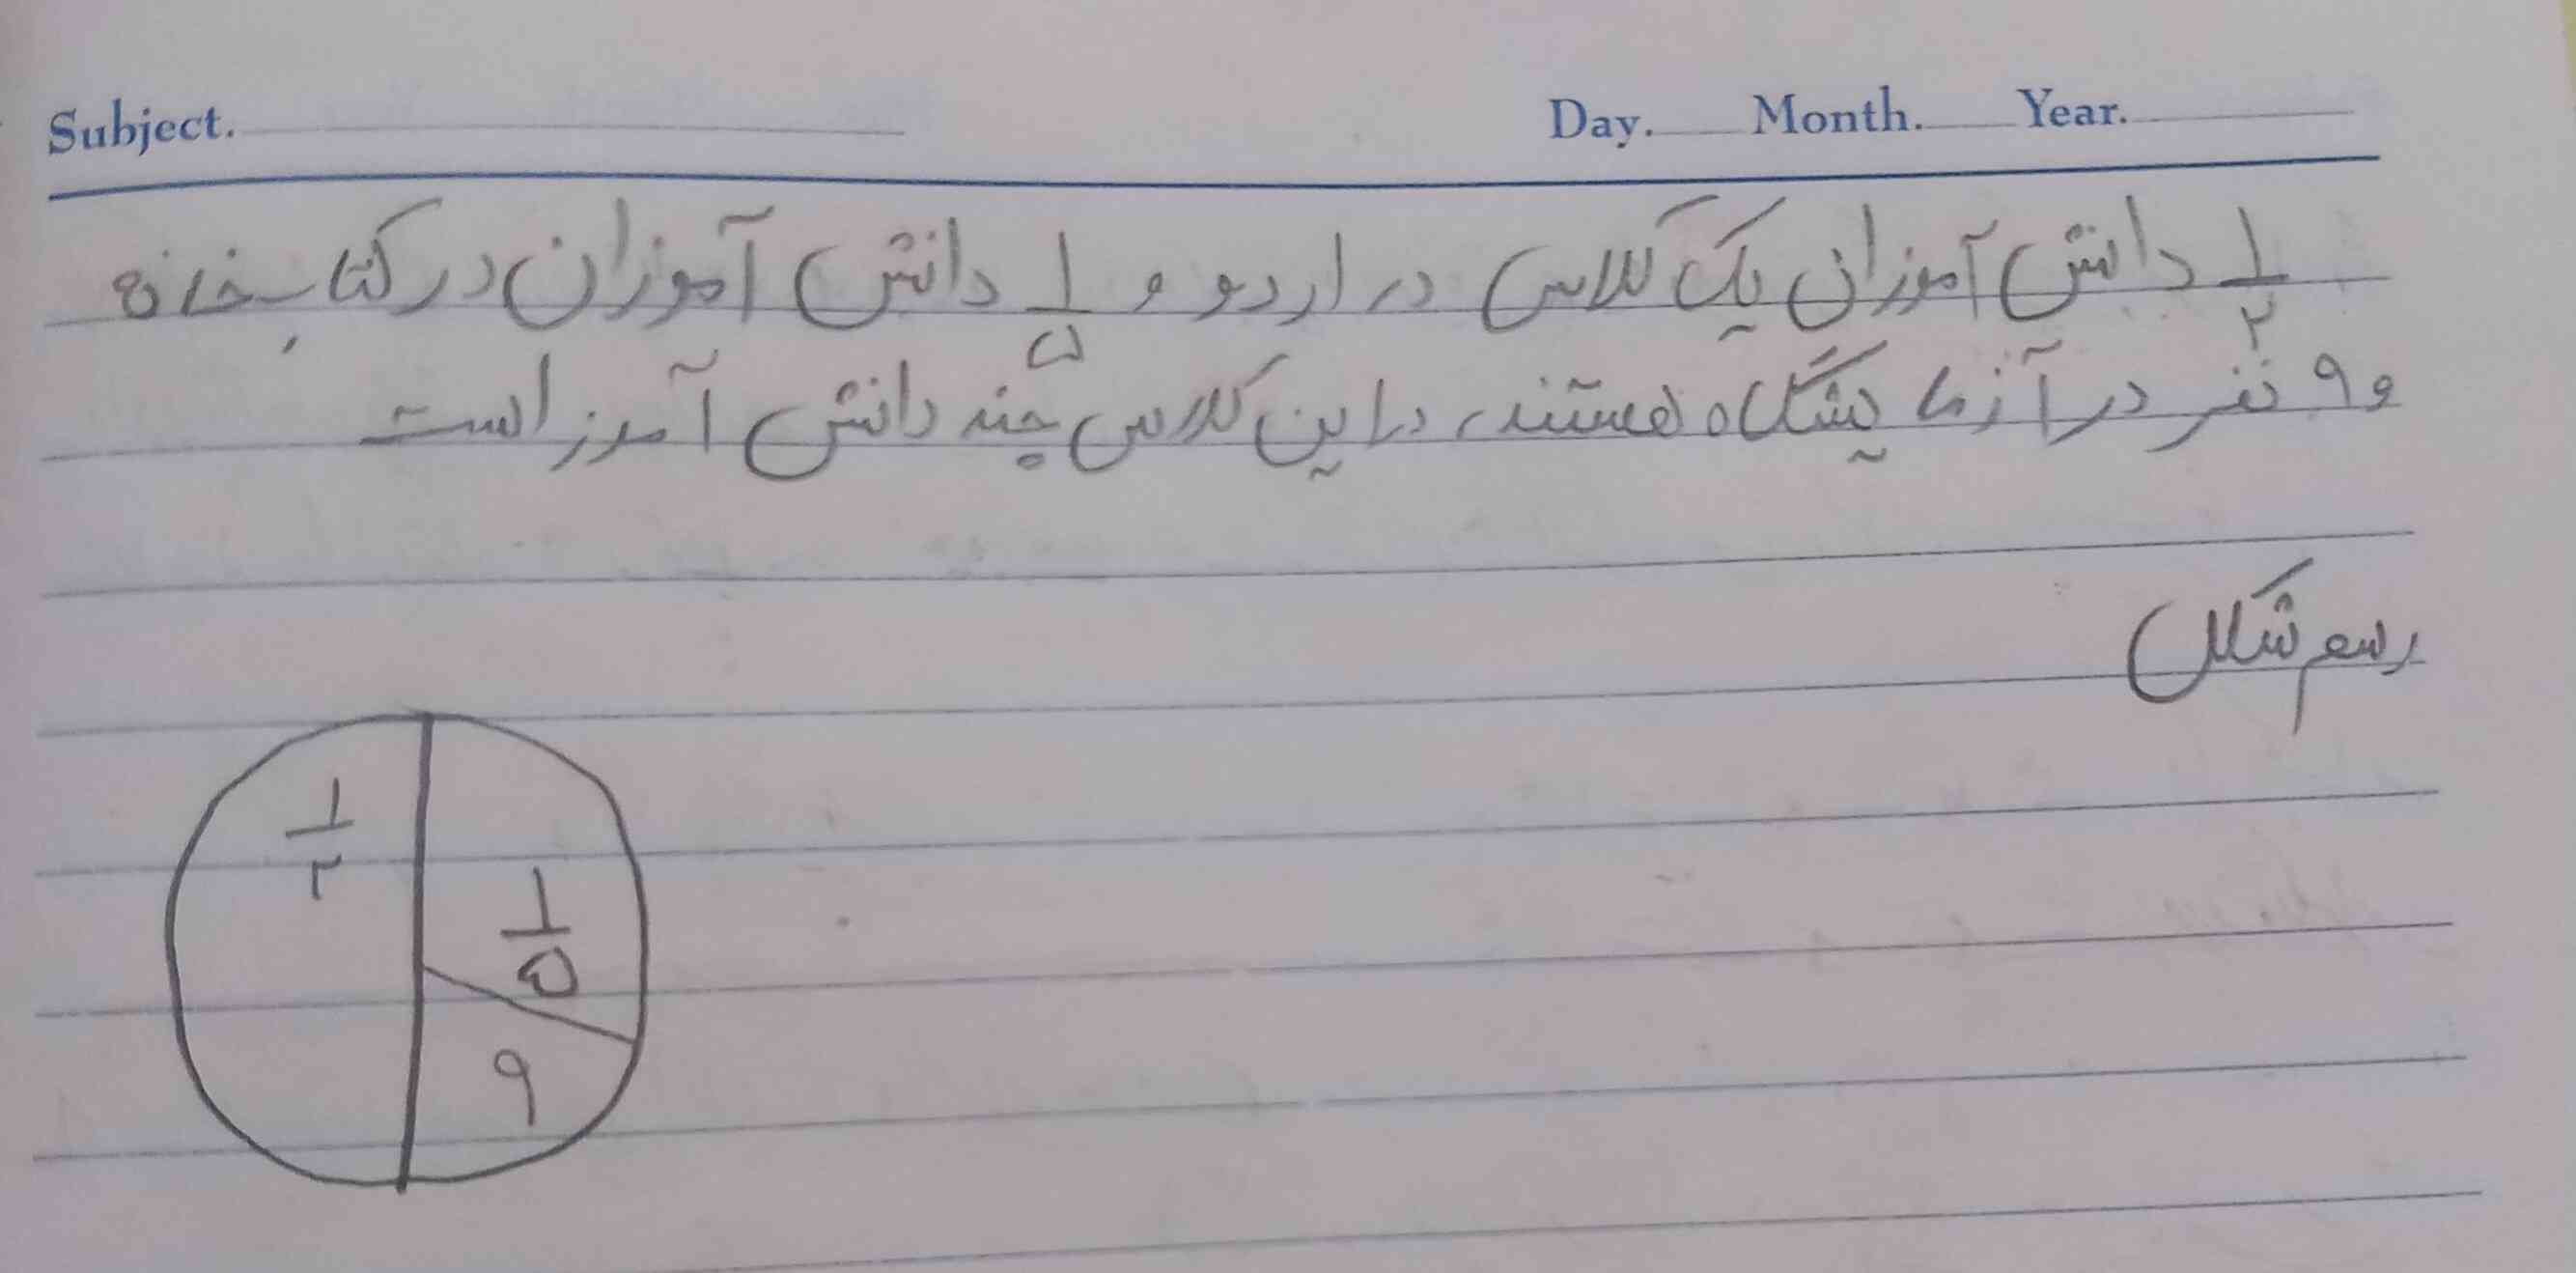 Subject. Day. Month. Year.
۱/۲ دانش آموزان یک کلاس در اردو و ۱/۵ دانش آموزان در کتاب خانه
و ۹ نفر در آزمایشگاه هستند، در این کلاس چند دانش آموز است
رسم شکل
۱/۲
۱/۵
۹